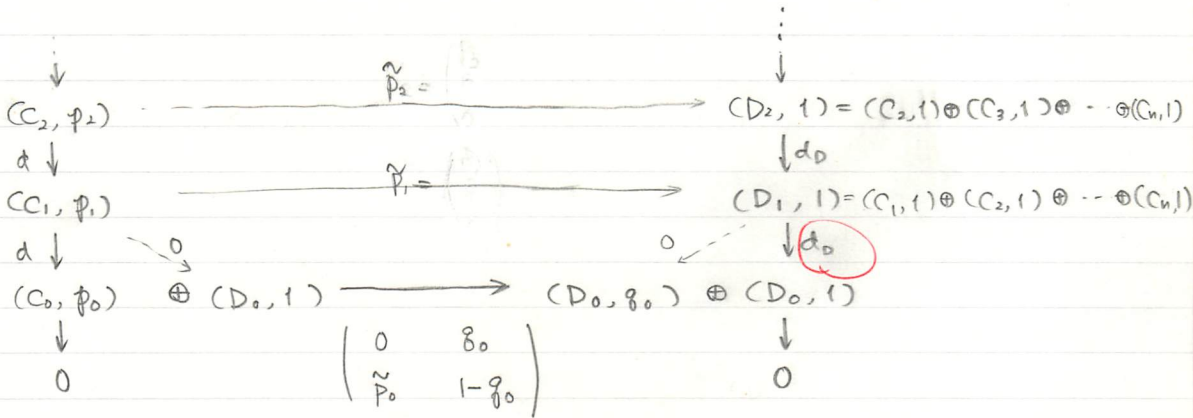 p̃₂ =
(C₂, p₂) → (D₂, 1) = (C₂, 1) ⊕ (C₃, 1) ⊕ ⋯ ⊕ (Cₙ, 1)
d ↓ ↓ d_D
p̃₁ =
(C₁, p₁) → (D₁, 1) = (C₁, 1) ⊕ (C₂, 1) ⊕ ⋯ ⊕ (Cₙ, 1)
d ↓ 0 0 ↓ d_D
(C₀, p₀) ⊕ (D₀, 1) → (D₀, q₀) ⊕ (D₀, 1)
↓ ( 0 q₀ ) ↓
0 ( p̃₀ 1 - q₀ ) 0